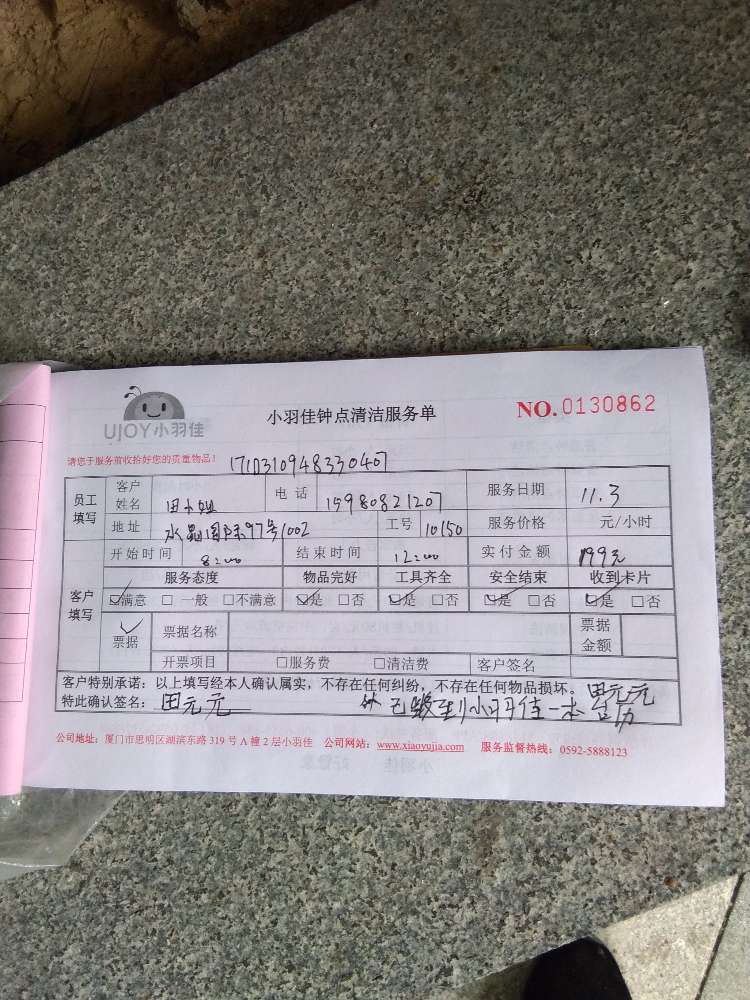 UJOY小羽佳
小羽佳钟点清洁服务单
NO.0130862
请您于服务前收拾好您的贵重物品！ 171D310948330407
员工填写 客户姓名 田小姐 电话 15980821207 服务日期 11.3
地址 水晶国际97号1002 工号 10150 服务价格 元/小时
客户填写 开始时间 8:00 结束时间 12:00 实付金额 199元
服务态度 物品完好 工具齐全 安全结束 收到卡片
☑满意 □一般 □不满意 ☑是 □否 ☑是 □否 ☑是 □否 ☑是 □否
票据 票据名称 票据金额
开票项目 □服务费 □清洁费 客户签名
客户特别承诺：以上填写经本人确认属实，不存在任何纠纷，不存在任何物品损坏。 田元元
特此确认签名： 田元元 已缴到小羽佳一本
公司地址：厦门市思明区湖滨东路 319 号 A 幢 2 层小羽佳 公司网站：www.xiaoyujia.com 服务监督热线：0592-5888123